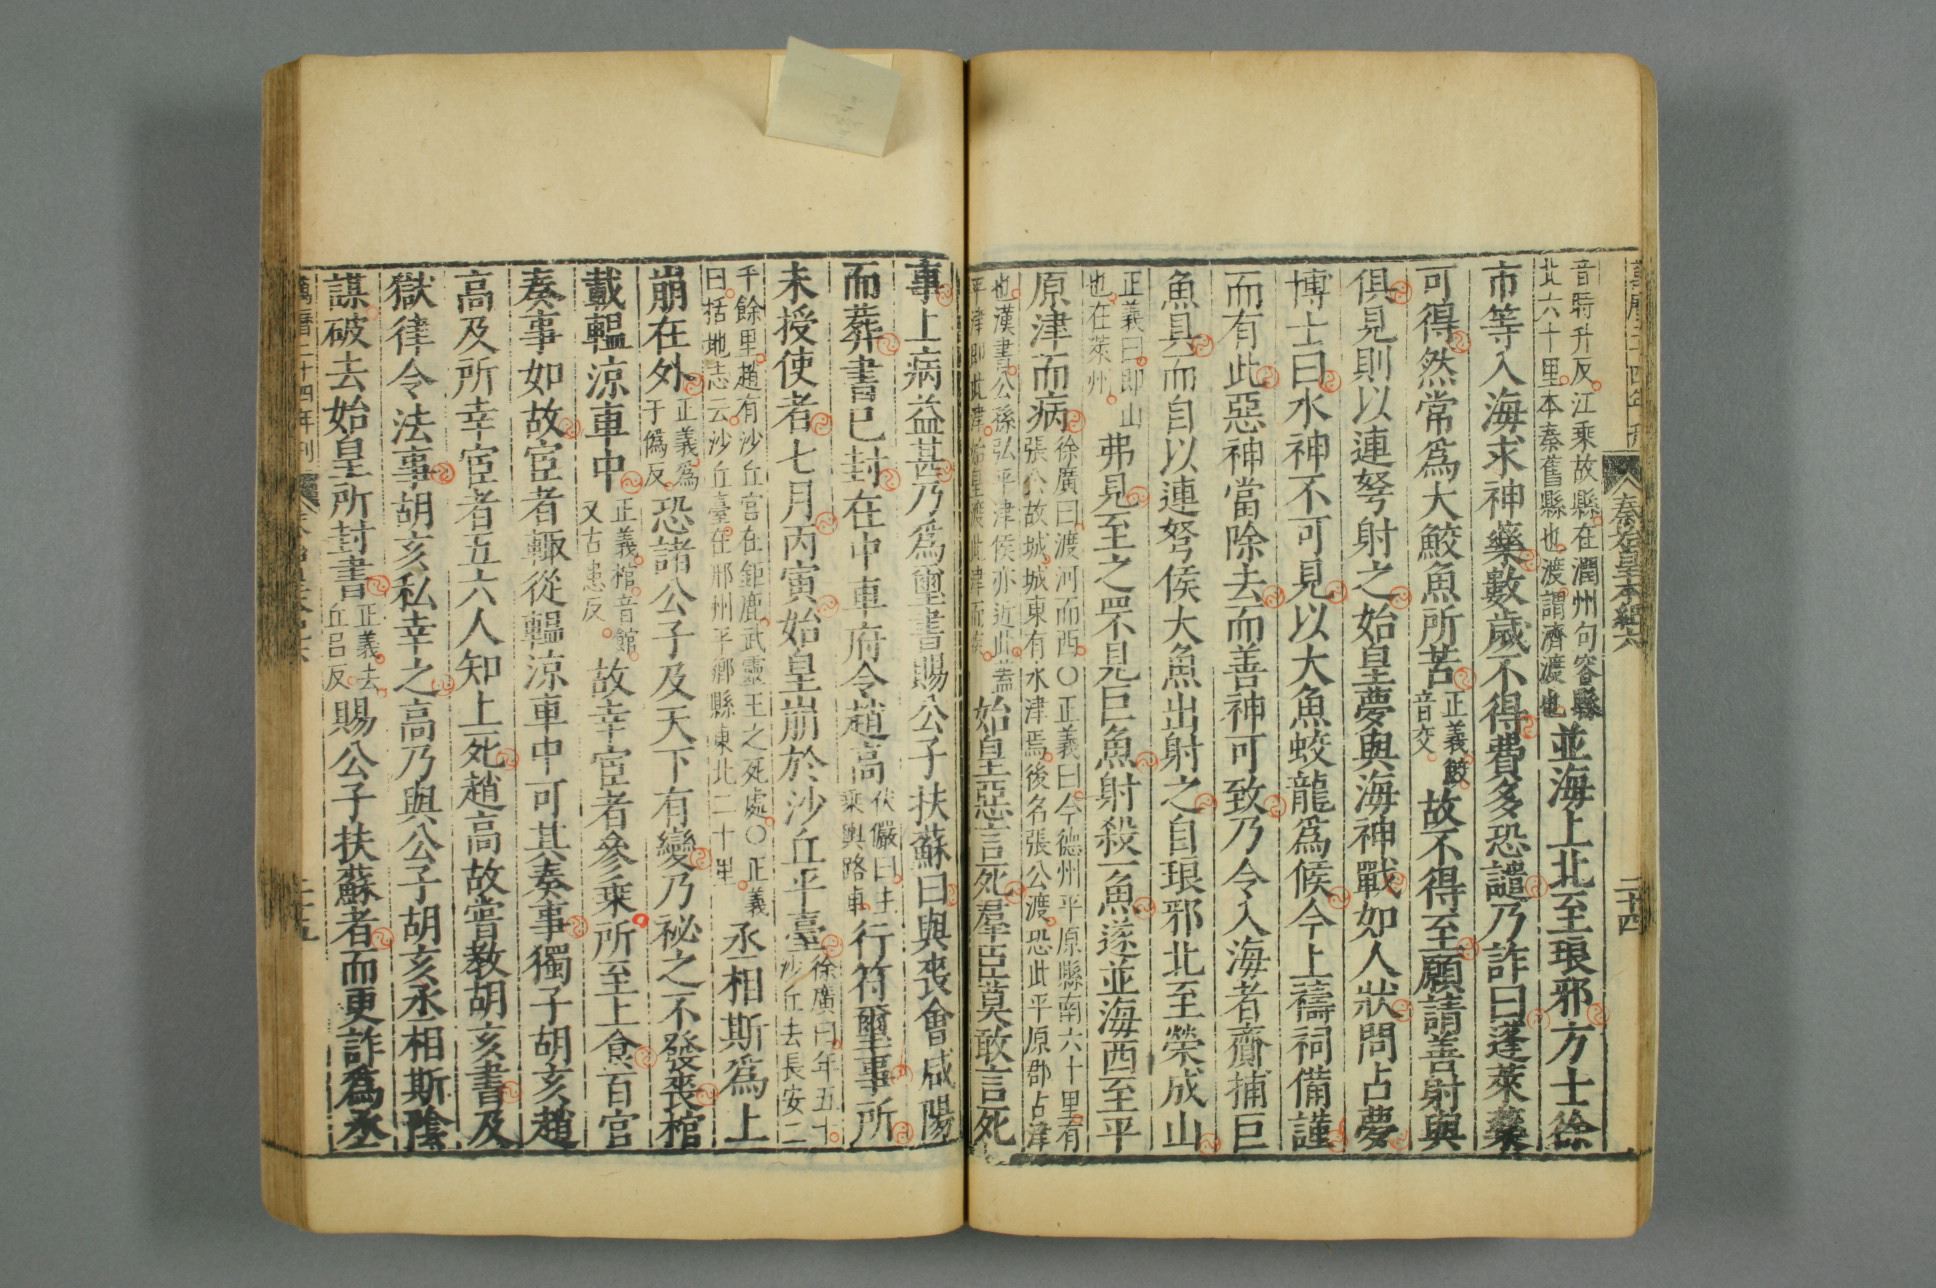 秦始皇本紀六
二十四
音時升反江乘故縣在潤州句容縣
北六十里本秦舊縣也渡謂濟渡也
並海上北至琅邪方士徐
市等入海求神藥數歲不得費多恐譴乃詐曰蓬萊藥
可得然常爲大鮫魚所苦
正義鮫
音交
故不得至願請善射與
俱見則以連弩射之始皇夢與海神戰如人狀問占夢
博士曰水神不可見以大魚蛟龍爲候今上禱祠備謹
而有此惡神當除去而善神可致乃令入海者齎捕巨
魚具而自以連弩候大魚出射之自琅邪北至榮成山
正義曰即山
也在萊州
弗見至之罘見巨魚射殺一魚遂並海西至平
原津而病
徐廣曰渡河而西○正義曰今德州平原縣南六十里有
張公故城城東有水津焉後名張公渡恐此平原郡占津
也漢書公孫弘平津侯亦近此蓋
平津即此津始皇渡此津而疾
始皇惡言死羣臣莫敢言死
事上病益甚乃爲璽書賜公子扶蘇曰與喪會咸陽
而葬書已封在中車府令趙高
伏儼曰主
乘輿路車
行符璽事所
未授使者七月丙寅始皇崩於沙丘平臺
徐廣曰年五十
沙丘去長安二
千餘里趙有沙丘宮在鉅鹿武靈王之死處○正義
曰括地志云沙丘臺在邢州平鄉縣東北二十里
丞相斯爲上
崩在外
正義爲
于僞反
恐諸公子及天下有變乃祕之不發喪棺
載轀涼車中
正義棺音館
又古患反
故幸宦者參乘所至上食百官
奏事如故宦者輒從轀涼車中可其奏事獨子胡亥趙
高及所幸宦者五六人知上死趙高故嘗教胡亥書及
獄律令法事胡亥私幸之高乃與公子胡亥丞相斯陰
謀破去始皇所封書
正義去
丘呂反
賜公子扶蘇者而更詐爲丞
萬曆二十四年刊
二十五